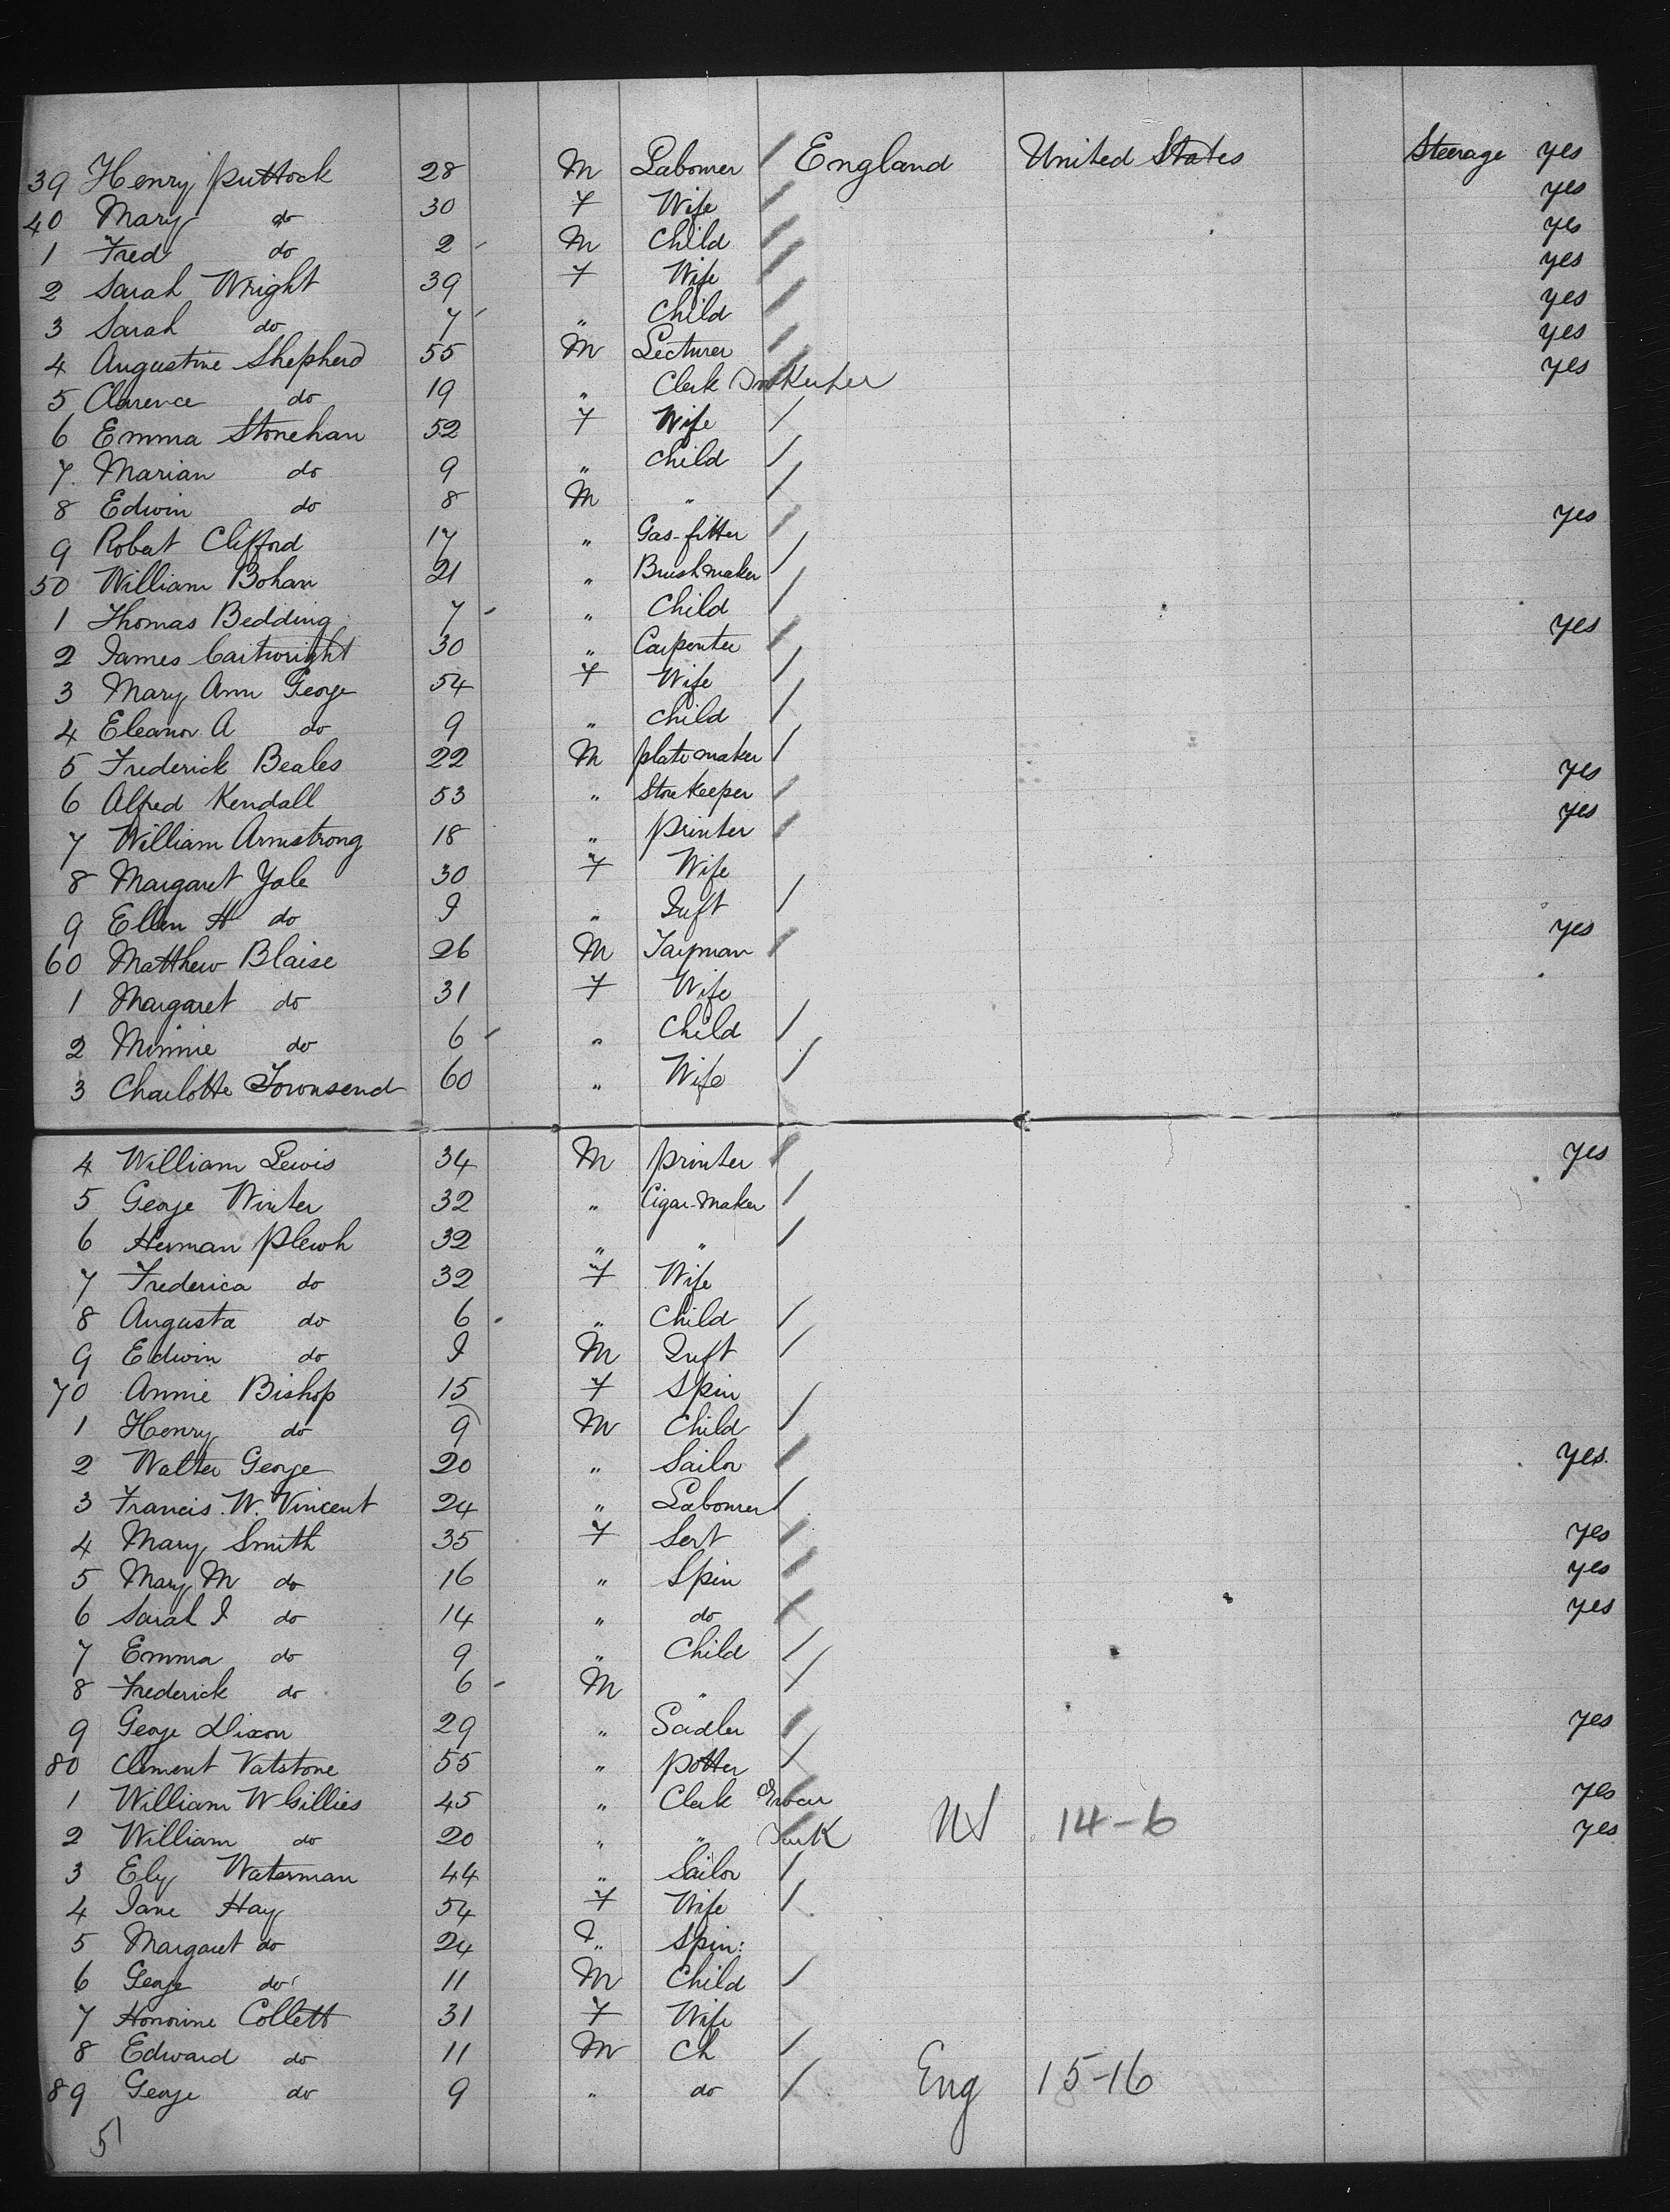 39 Henry Puttock 28 M Labourer / England United States Steerage yes
40 Mary do 30 F Wife / yes
1 Fred do 2 - M Child / yes
2 Sarah Wright 39 F Wife / yes
3 Sarah do 7 - " Child / yes
4 Augustine Shepherd 55 M Lecturer / yes
5 Clarence do 19 " Clerk yes
6 Emma Stonehan 52 F Wife /
7. Marian do 9 " Child /
8 Edwin do 8 M " /
9 Robert Clifford 17 " Gas-fitter / yes
50 William Bohan 21 " Brushmaker /
1 Thomas Bedding 7 - " Child /
2 James Cartwright 30 " Carpenter / yes
3 Mary Ann George 54 F Wife /
4 Eleanor A do 9 " Child /
5 Frederick Beales 22 M platemaker /
6 Alfred Kendall 53 " Storekeeper / yes
7 William Armstrong 18 " printer / yes
8 Margaret Yale 30 F Wife
9 Ellen H do I " Inft /
60 Matthew Blaise 26 M / yes
1 Margaret do 31 F Wife
2 Minnie do 6 - " Child /
3 Charlotte Townsend 60 " Wife /
4 William Lewis 34 M printer / yes
5 George Winter 32 " Cigar-Maker /
6 Herman Plewh 32 " " /
7 Frederica do 32 F Wife
8 Augusta do 6 - " Child /
9 Edwin do I M Inft /
70 Annie Bishop 15 F Spin
1 Henry do 9 M Child /
2 Walter George 20 " Sailor / yes.
3 Francis. W. Vincent 24 " Labourer /
4 Mary Smith 35 F Sert / yes
5 Mary M do 16 " Spin / yes
6 Sarah I do 14 " do / yes
7 Emma do 9 " Child /
8 Frederick do 6 - M " /
9 George Dixon 29 " Sadler / yes
80 Clement Vatstone 55 " potter /
1 William W Gillies 45 " Clerk Grocer yes
2 William do 20 " " US 14-6 yes
3 Ely Waterman 44 " Sailor /
4 Jane Hay 54 F Wife /
5 Margaret do 24 " Spin:
6 George do 11 M Child /
7 Honorine Collett 31 F Wife
8 Edward do 11 M Ch /
89 George do 9 " do / Eng 15-16
51